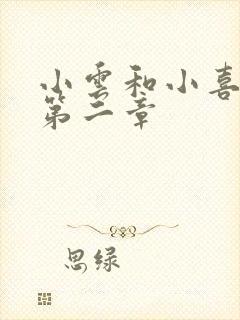 小雲和小喜
第二章
思绿